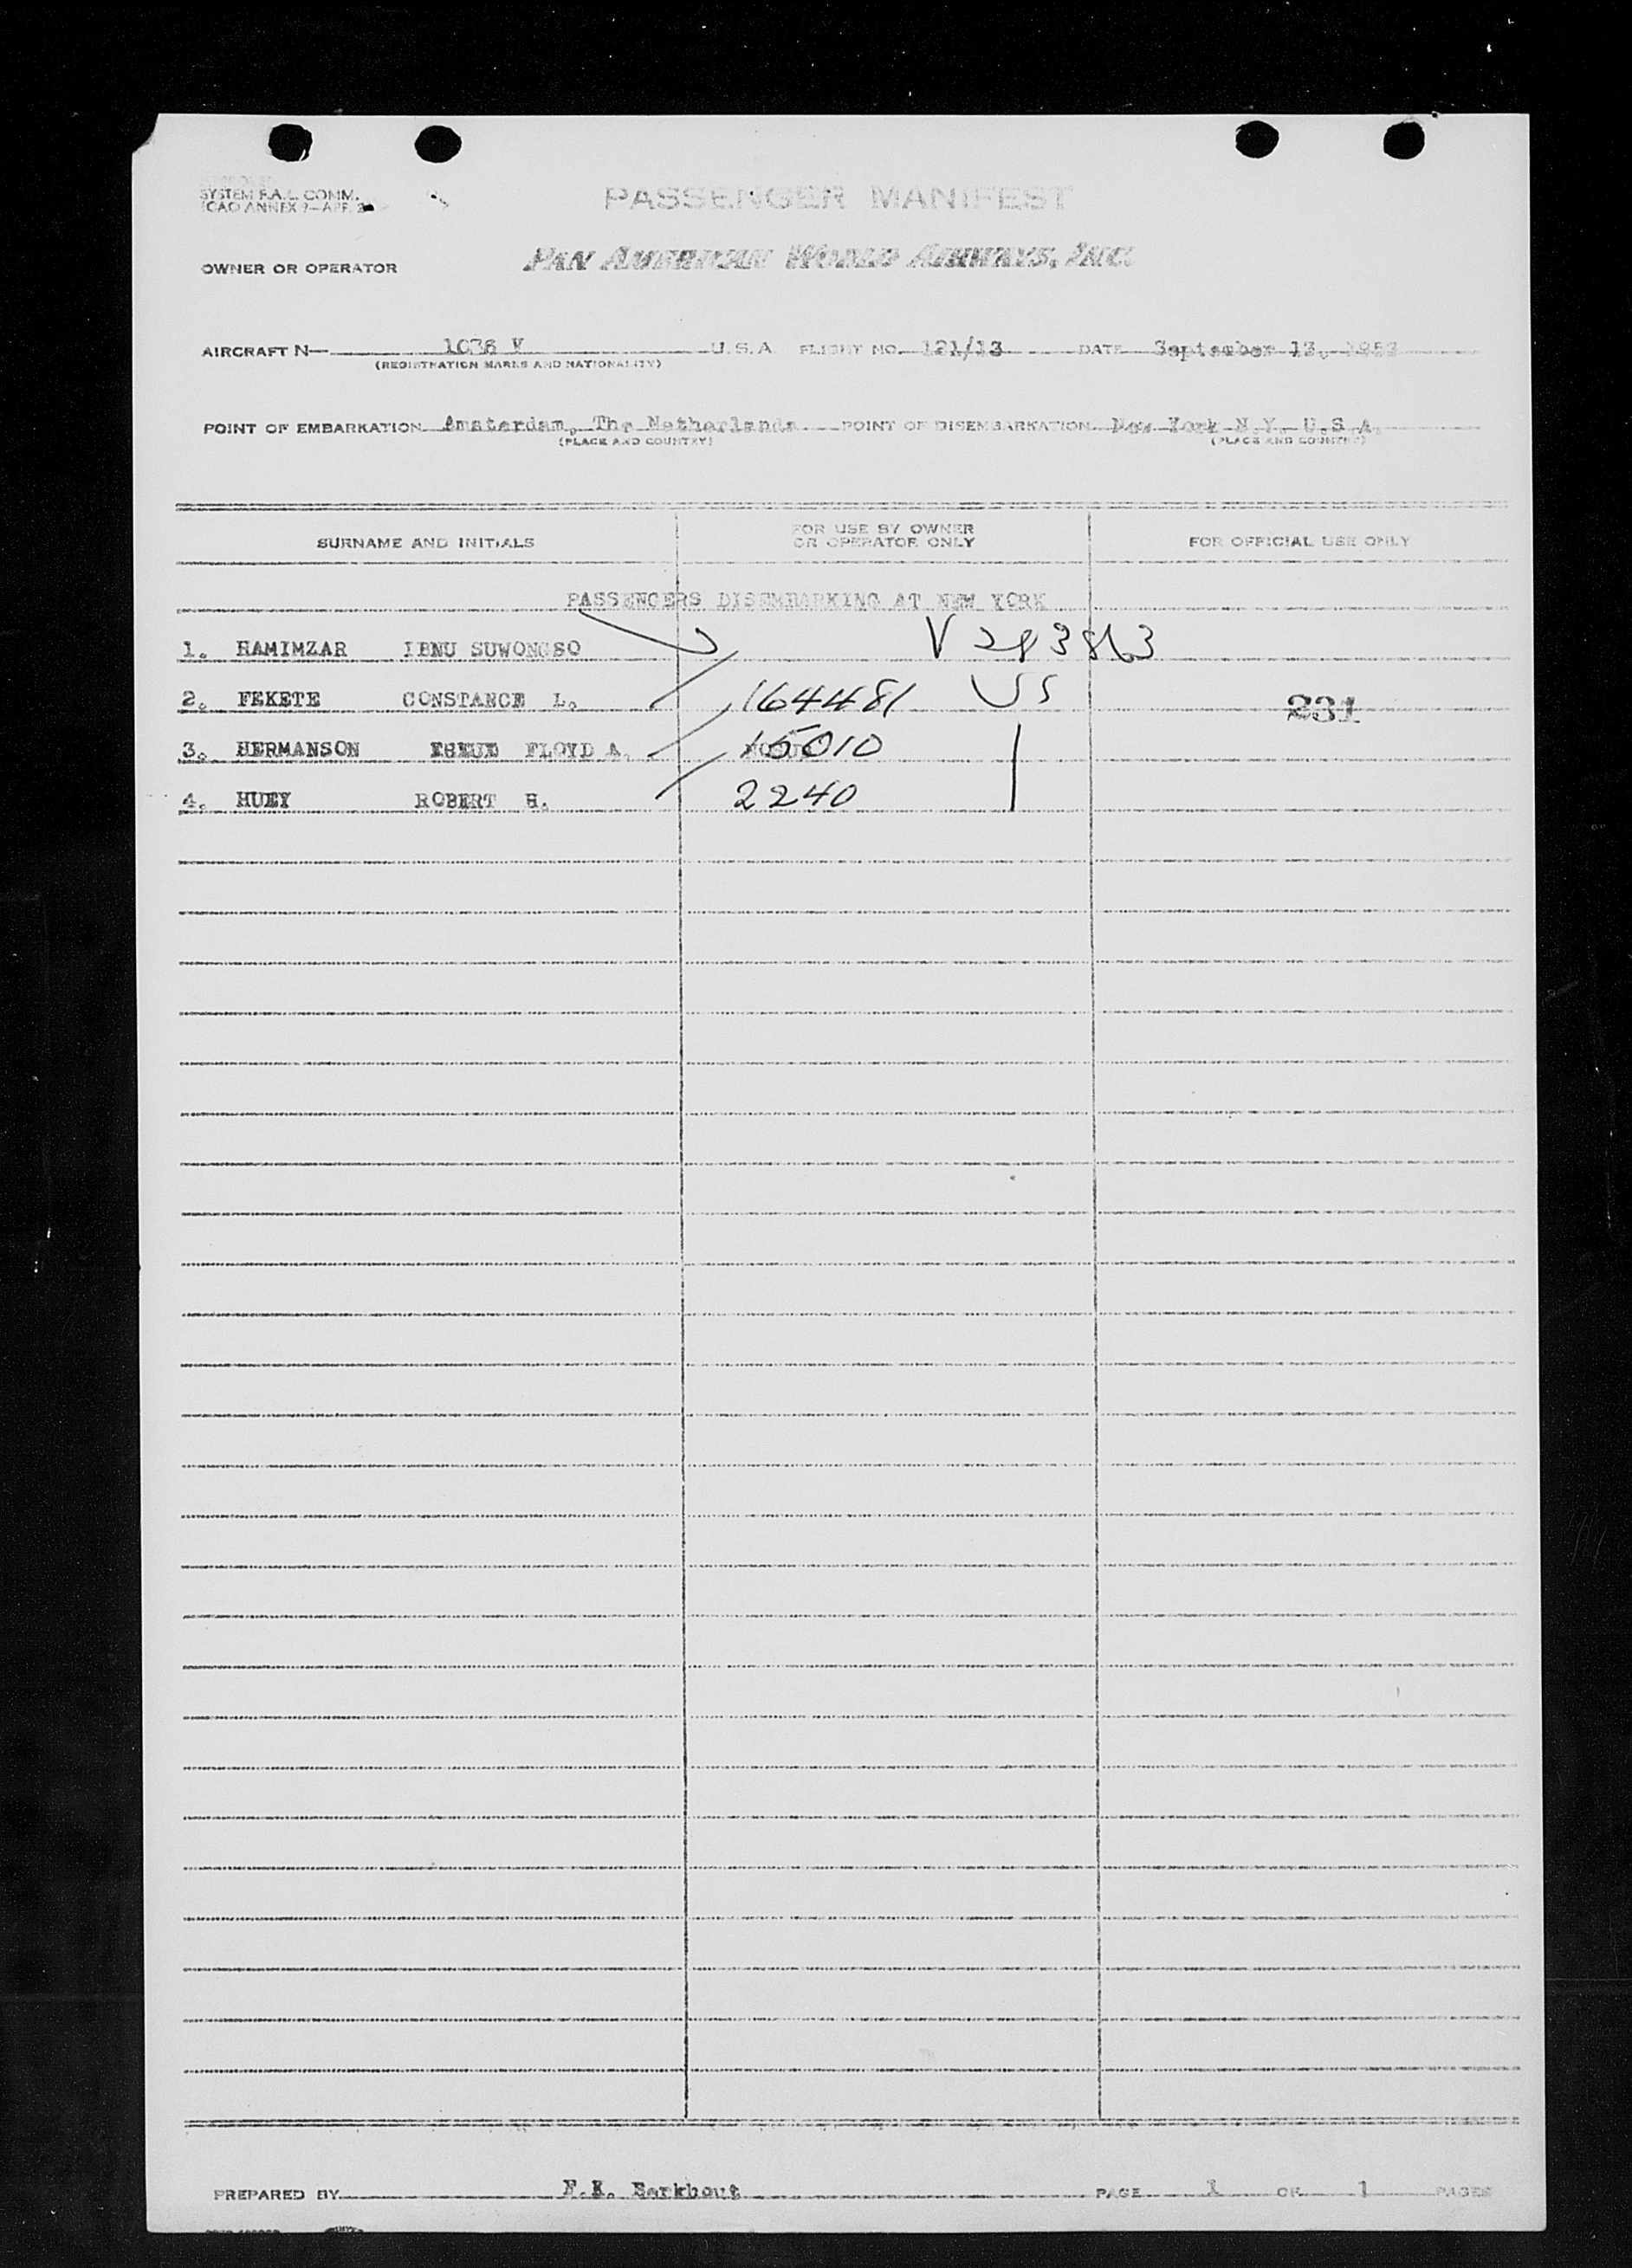 SYSTEM F.A.L. COMM.
ICAO ANNEX 9—APP. 3
PASSENGER MANIFEST
OWNER OR OPERATOR PAN AMERICAN WORLD AIRWAYS, INC.
AIRCRAFT N— 1036 V U.S.A FLIGHT NO. 121/13 DATE September 13, 1953
(REGISTRATION MARKS AND NATIONALITY)
POINT OF EMBARKATION Amsterdam, The Netherlands POINT OF DISEMBARKATION New York N.Y. U.S.A.
(PLACE AND COUNTRY) (PLACE AND COUNTRY)
SURNAME AND INITIALS FOR USE BY OWNER OR OPERATOR ONLY FOR OFFICIAL USE ONLY
PASSENGERS DISEMBARKING AT NEW YORK
1. HAMIMZAR IBNU SUWONGSO V 283863
2. FEKETE CONSTANCE L. 164481 US 231
3. HERMANSON FLOYD A. 15010
4. HUEY ROBERT H. 2240
PREPARED BY F.K. Barkhout PAGE 1 OF 1 PAGES